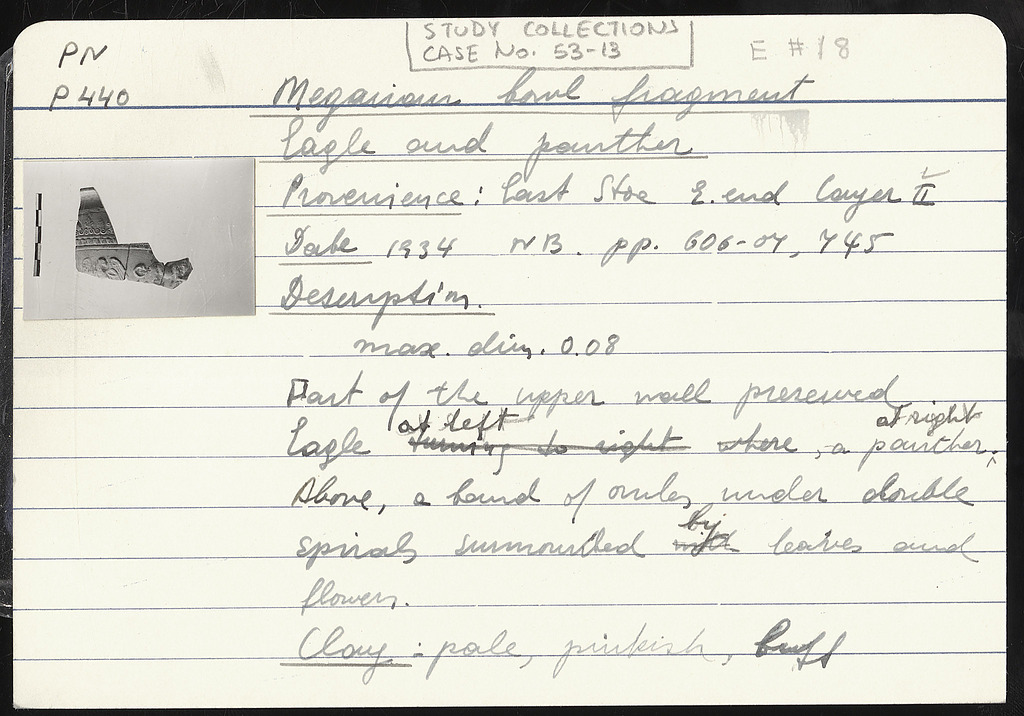 STUDY COLLECTIONS
CASE No. 53-13
E #18
PN
P 440
Megarian bowl fragment
Eagle and panther
Provenience: East Stoa E. end layer II
Date 1934 NB. pp. 606-07, 745
Description.
max. dim. 0.08
Part of the upper wall preserved
at left at right
Eagle turning to right where, a panther.
Above, a band of ovules, under double
by
spirals surmounted with leaves and
flowers.
Clay: pale, pinkish, buff